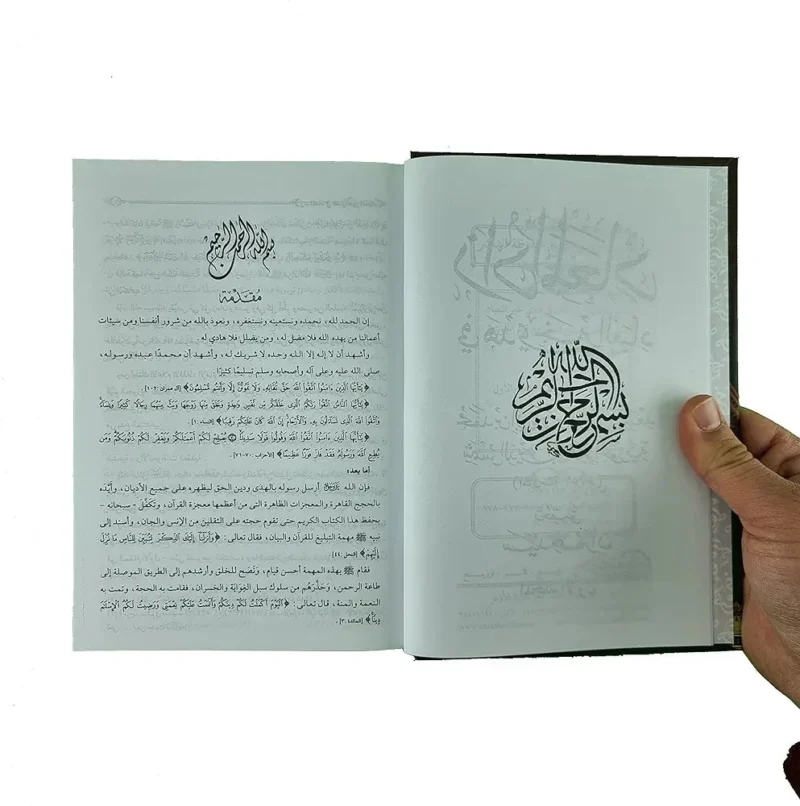 بسم الله الرحمن الرحيم
بسم الله الرحمن الرحيم
مُقَدِّمَة
إن الحمد لله، نحمده ونستعينه ونستغفره، ونعوذ بالله من شرور أنفسنا ومن سيئات
أعمالنا من يهده الله فلا مضل له، ومن يضلل فلا هادي له
وأشهد أن لا إله إلا الله وحده لا شريك له، وأشهد أن محمدًا عبده ورسوله،
صلى الله عليه وعلى آله وأصحابه وسلم تسليمًا كثيرًا
﴿يَٰٓأَيُّهَا ٱلَّذِينَ ءَامَنُوا۟ ٱتَّقُوا۟ ٱللَّهَ حَقَّ تُقَاتِهِۦ وَلَا تَمُوتُنَّ إِلَّا وَأَنتُم مُّسْلِمُونَ﴾ [آل عمران: ١٠٢]
﴿يَٰٓأَيُّهَا ٱلنَّاسُ ٱتَّقُوا۟ رَبَّكُمُ ٱلَّذِى خَلَقَكُم مِّن نَّفْسٍ وَٰحِدَةٍ وَخَلَقَ مِنْهَا زَوْجَهَا وَبَثَّ مِنْهُمَا رِجَالًا كَثِيرًا وَنِسَآءً
وَٱتَّقُوا۟ ٱللَّهَ ٱلَّذِى تَسَآءَلُونَ بِهِۦ وَٱلْأَرْحَامَ إِنَّ ٱللَّهَ كَانَ عَلَيْكُمْ رَقِيبًا﴾ [النساء: ١]
﴿يَٰٓأَيُّهَا ٱلَّذِينَ ءَامَنُوا۟ ٱتَّقُوا۟ ٱللَّهَ وَقُولُوا۟ قَوْلًا سَدِيدًا ۝ يُصْلِحْ لَكُمْ أَعْمَٰلَكُمْ وَيَغْفِرْ لَكُمْ ذُنُوبَكُمْ وَمَن
يُطِعِ ٱللَّهَ وَرَسُولَهُۥ فَقَدْ فَازَ فَوْزًا عَظِيمًا﴾ [الأحزاب: ٧٠-٧١]
أما بعد:
فإن الله أرسل رسوله بالهدى ودين الحق ليظهره على جميع الأديان، وأيَّده
بالحجج القاهرة والمعجزات الظاهرة التي من أعظمها معجزة القرآن، وتكفَّل - سبحانه -
بحفظ هذا الكتاب الكريم حتى تقوم حجته على الثقلين من الإنس والجان، وأسند إلى
نبيه ﷺ مهمة التبليغ للقرآن والبيان، فقال تعالى: ﴿وَأَنزَلْنَآ إِلَيْكَ ٱلذِّكْرَ لِتُبَيِّنَ لِلنَّاسِ مَا نُزِّلَ
إِلَيْهِمْ﴾ [النحل: ٤٤]
فقام ﷺ بهذه المهمة أحسن قيام، ونَصَح للخلق وأرشدهم إلى الطريق الموصلة إلى
طاعة الرحمن، وحَذَّرَهم من سلوك سبل الغواية والخسران، فقامت به الحجة، وتمت به
النعمة والمنة، قال تعالى: ﴿ٱلْيَوْمَ أَكْمَلْتُ لَكُمْ دِينَكُمْ وَأَتْمَمْتُ عَلَيْكُمْ نِعْمَتِى وَرَضِيتُ لَكُمُ ٱلْإِسْلَٰمَ
دِينًا﴾ [المائدة: ٣].